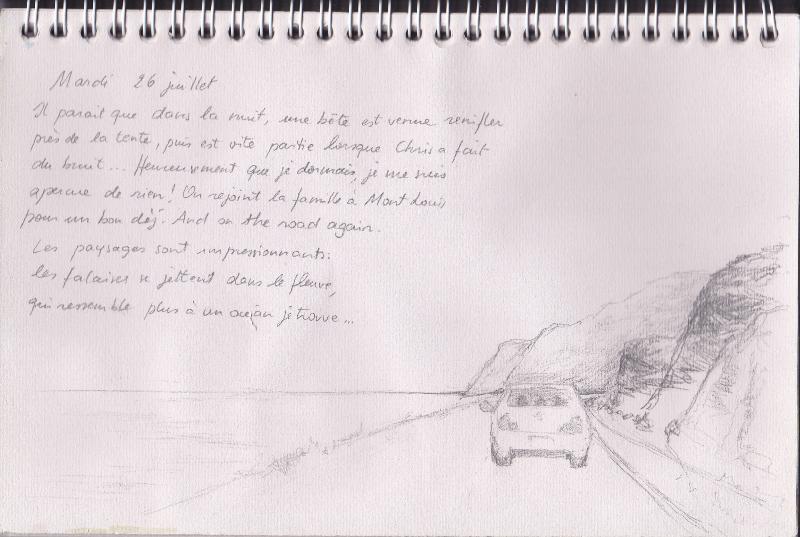 Mardi 26 juillet
Il parait que dans la nuit, une bête est venue renifler
près de la tente, puis est vite partie lorsque Chris a fait
du bruit... Heureusement que je dormais, je me suis
aperçue de rien! On rejoint la famille à Mont Louis
pour un bon déj. And on the road again.
Les paysages sont impressionnants:
les falaises se jettent dans le fleuve,
qui ressemble plus à un océan je trouve...